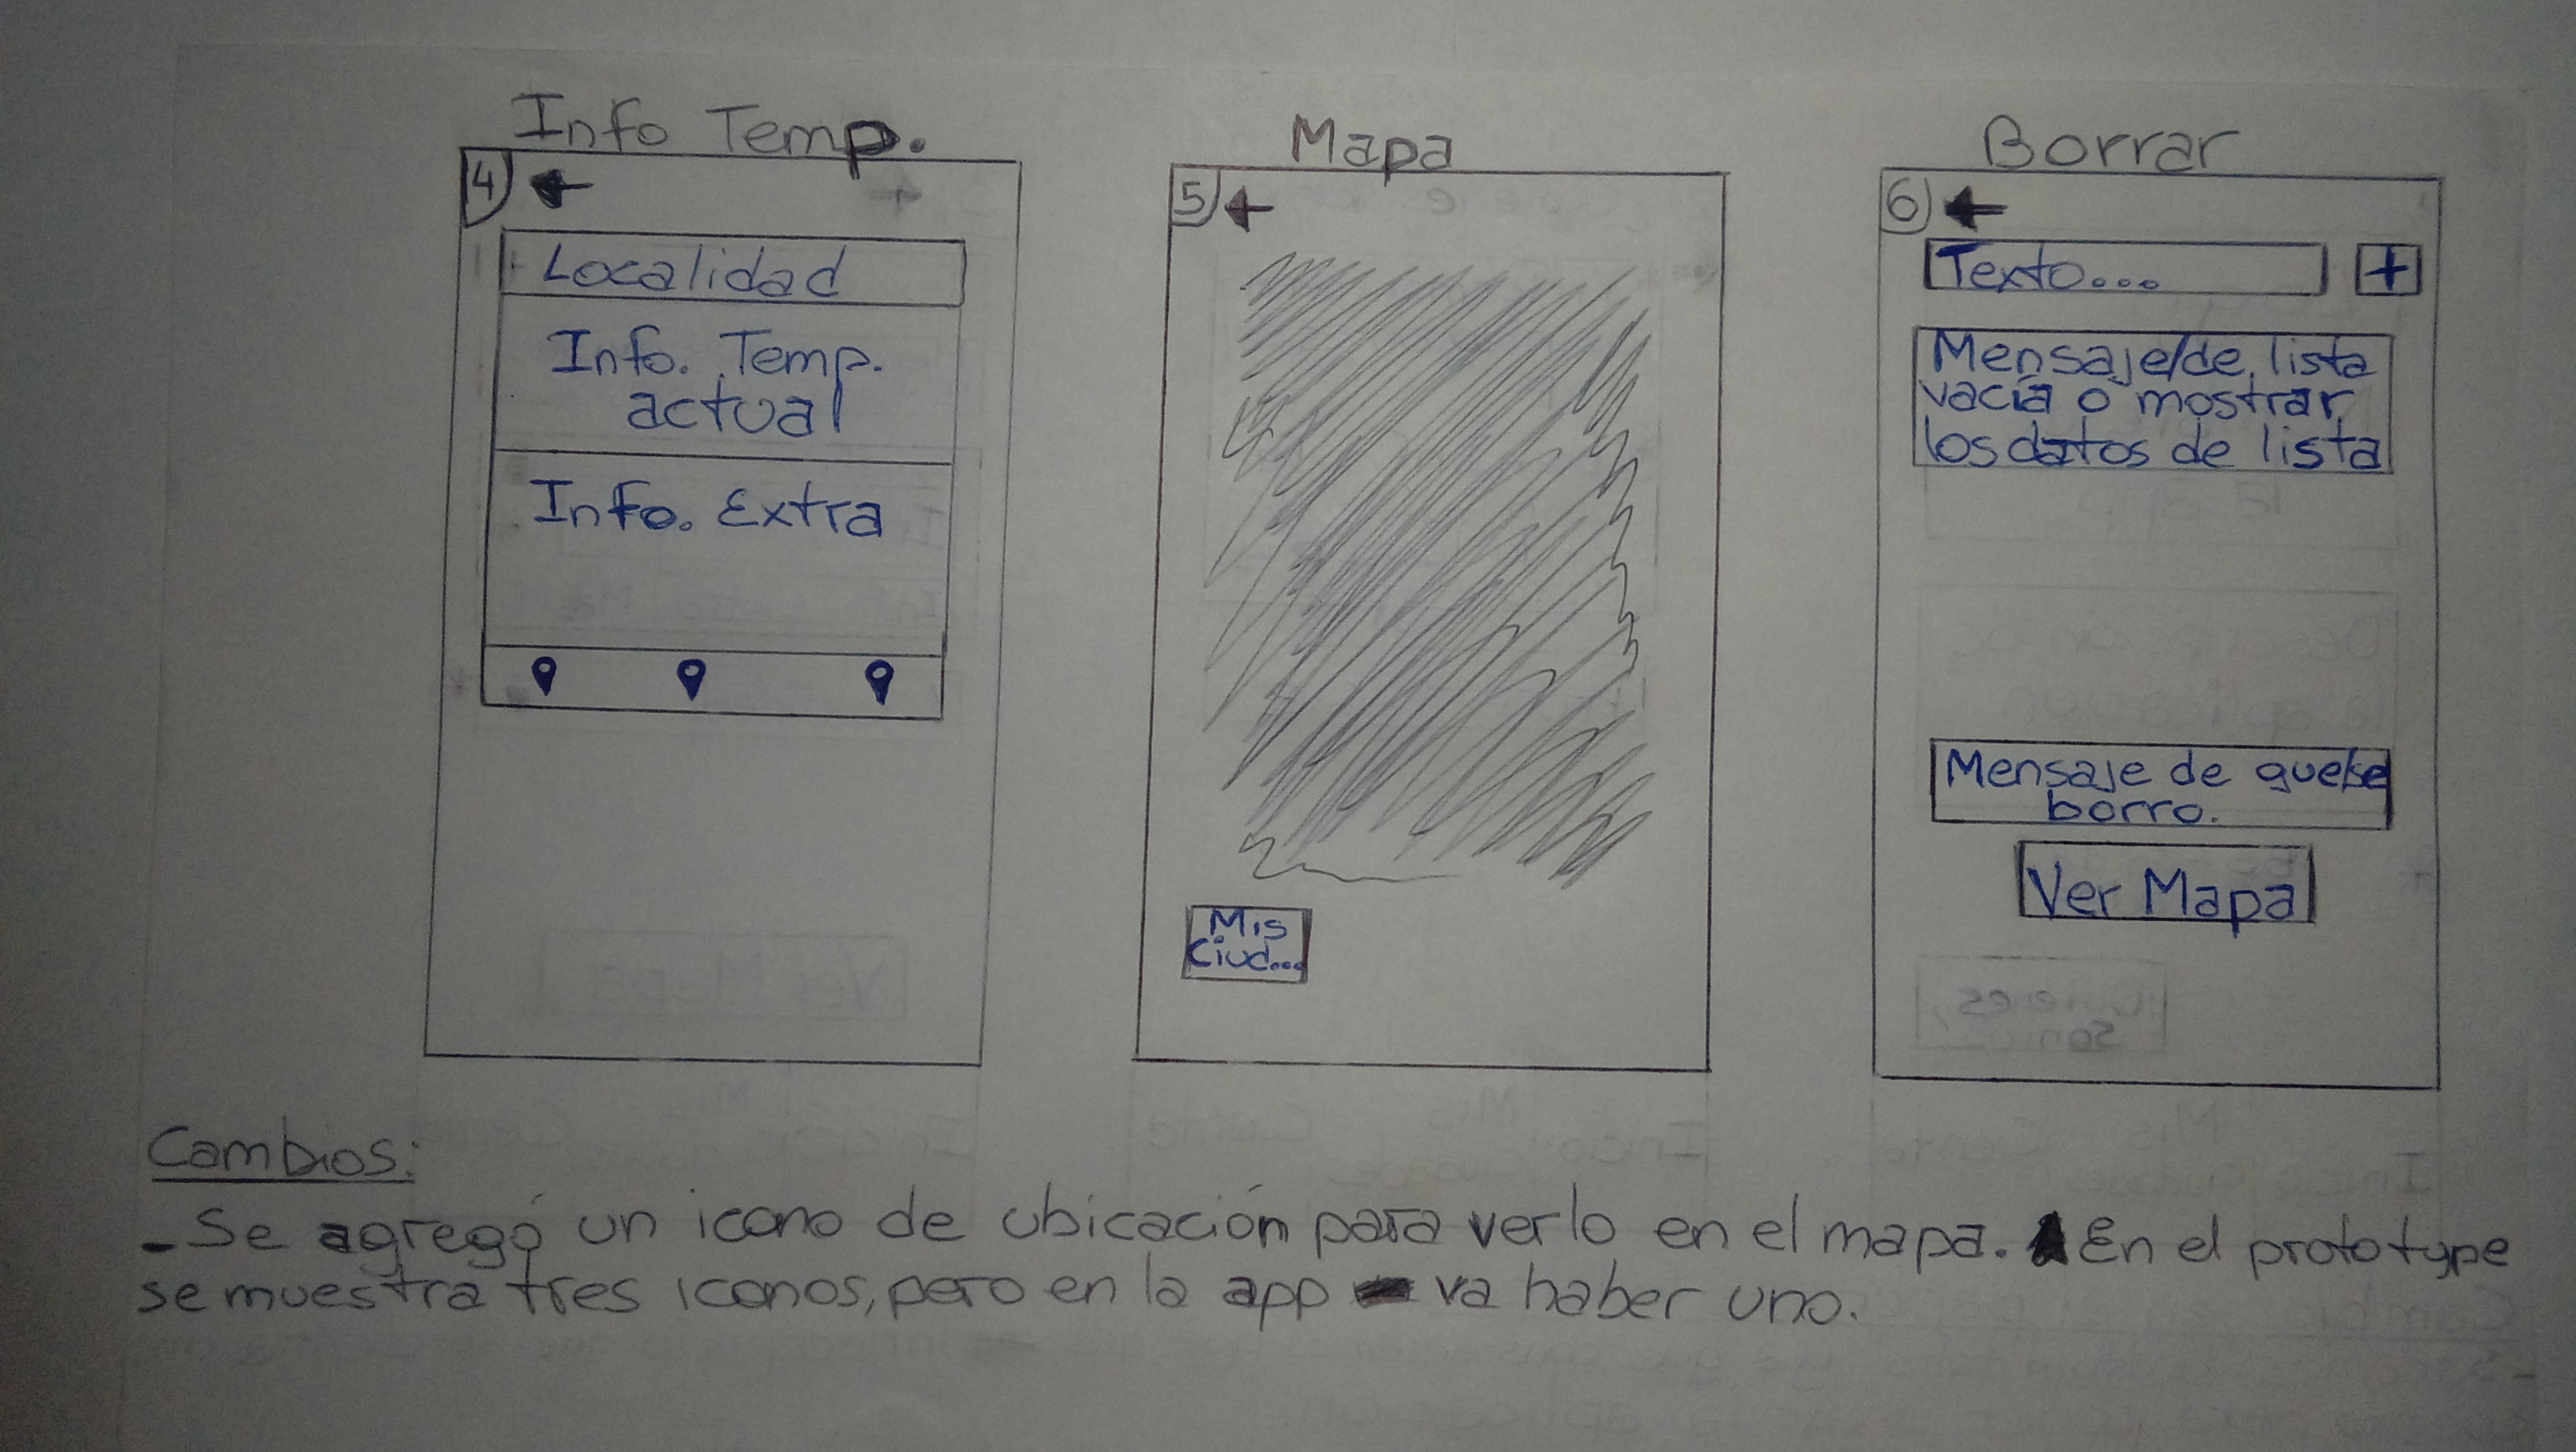 Info Temp.
4
Localidad
Info. Temp.
actual
Info. Extra
Mapa
5
Mis
Ciud...
Borrar
6
Texto...
+
Mensaje/de lista
vacía o mostrar
los datos de lista
Mensaje de que/se
borro.
Ver Mapa
Cambios:
- Se agregó un icono de ubicación para verlo en el mapa. En el prototype
se muestra tres iconos, pero en la app va haber uno.